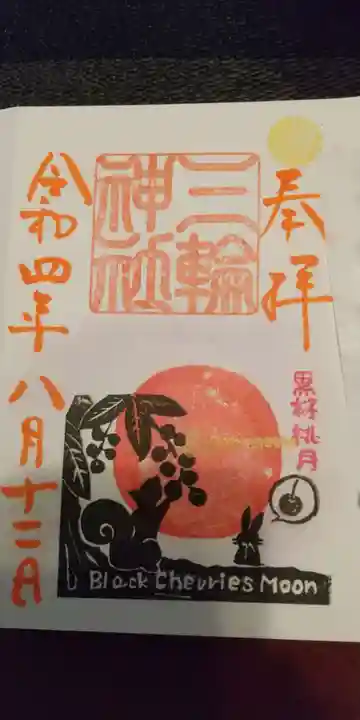 奉拝
三輪
神社
令和四年八月十二日
黒桜桃月
Black Cherries Moon